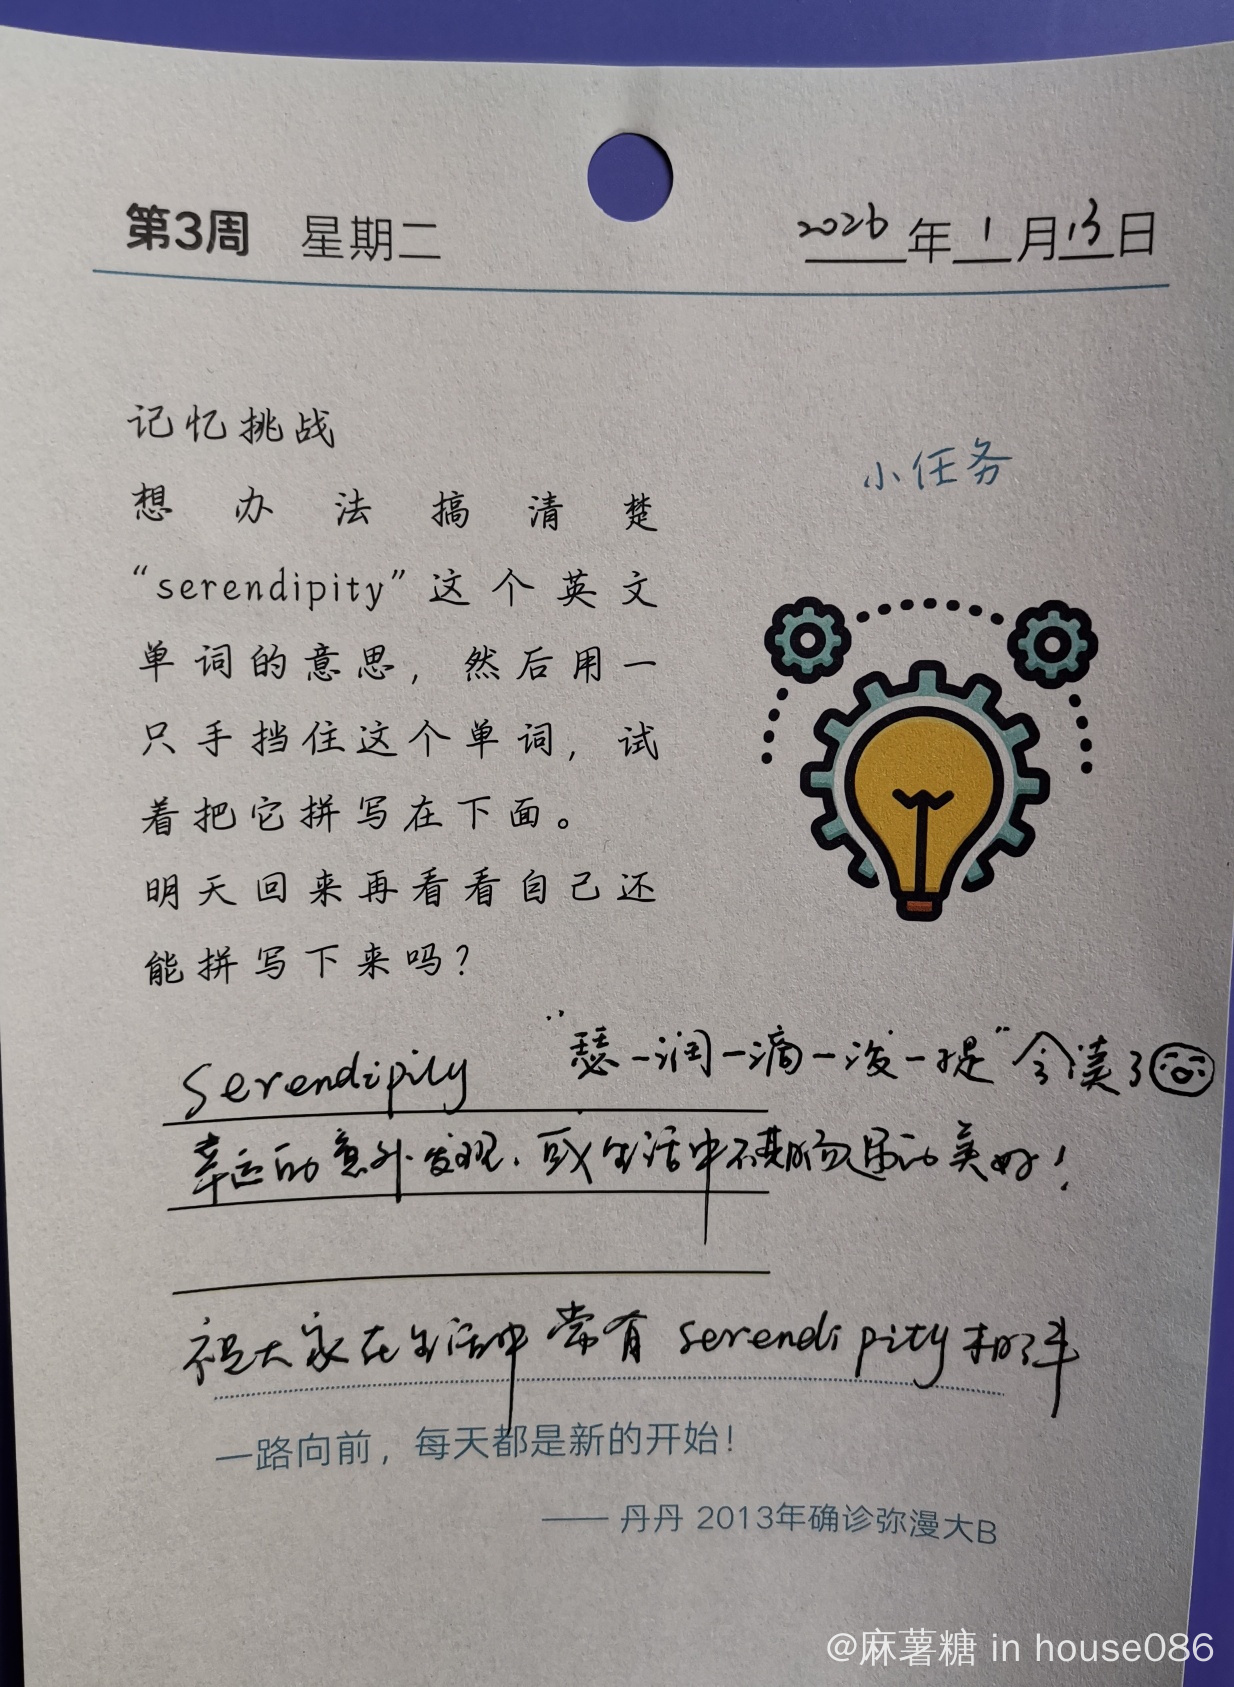 第3周 星期二 2026年1月13日
记忆挑战
想办法搞清楚
“serendipity”这个英文
单词的意思，然后用一
只手挡住这个单词，试
着把它拼写在下面。
明天回来再看看自己还
能拼写下来吗？
小任务
Serendipity “瑟-润-滴-泼-提”会读了
幸运的意外发现，或生活中不期而遇的美好！
祝大家在生活中常有 serendipity 相伴
一路向前，每天都是新的开始！
—— 丹丹 2013年确诊弥漫大B
@麻薯糖 in house086